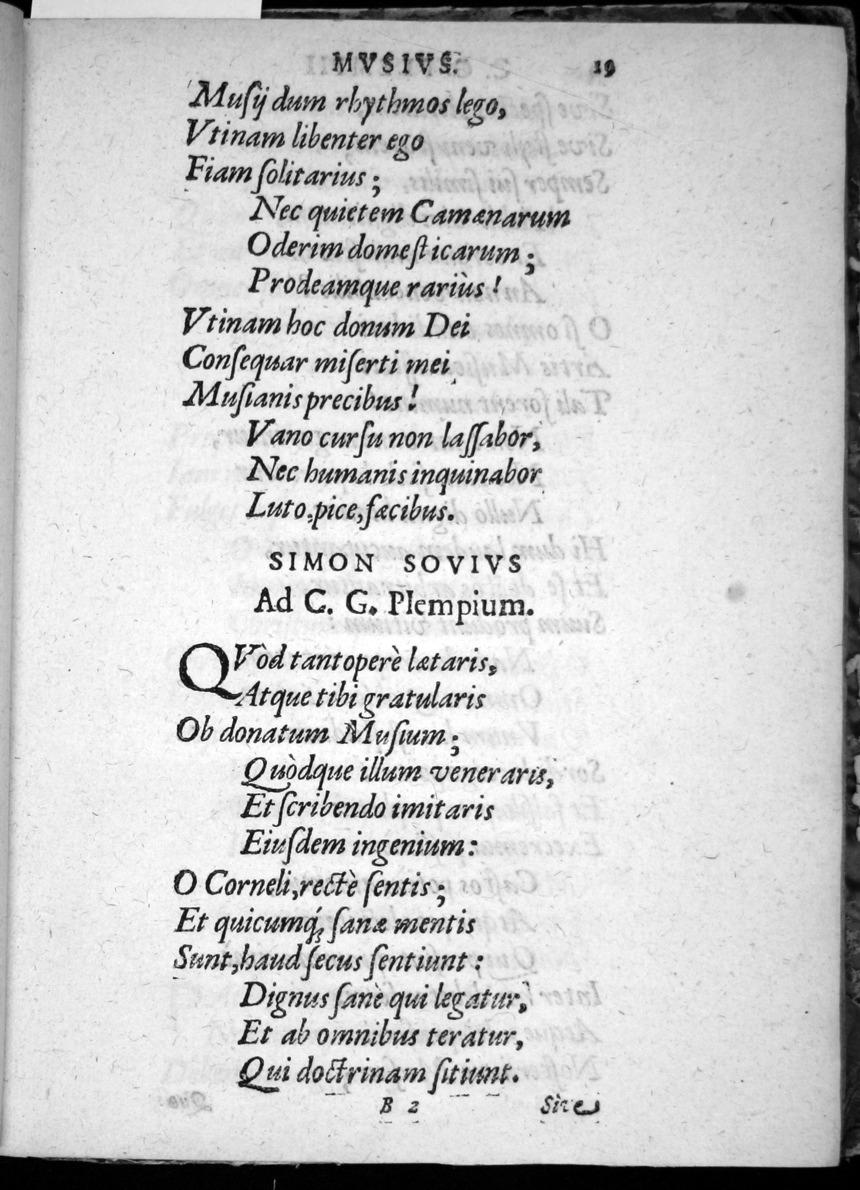 MVSIVS. 19
Muſij dum rhythmos lego,
Vtinam libenter ego
Fiam ſolitarius;
Nec quietem Camænarum
Oderim domeſticarum;
Prodeamque rariùs!
Vtinam hoc donum Dei
Conſequar miſerti mei
Muſianis precibus!
Vano curſu non laſſabor,
Nec humanis inquinabor
Luto, pice, fæcibus.
SIMON SOVIVS
Ad C. G. Plempium.
QVòd tantoperè lætaris,
Atque tibi gratularis
Ob donatum Muſium;
Quòdque illum veneraris,
Et ſcribendo imitaris
Eiuſdem ingenium:
O Corneli, rectè ſentis;
Et quicumq́; ſanæ mentis
Sunt, haud ſecus ſentiunt:
Dignus ſanè qui legatur,
Et ab omnibus teratur,
Qui doctrinam ſitiunt.
B 2 Sive